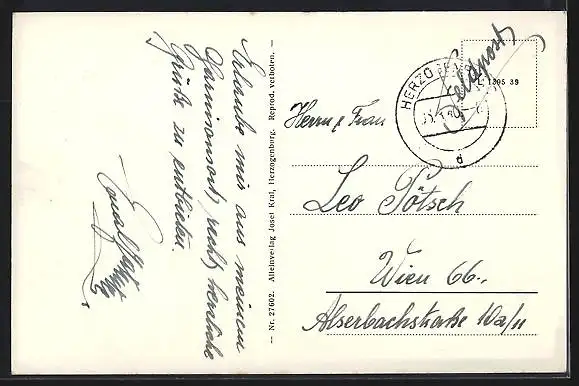 Erlaube mir aus meinem
Garnisonsort, recht herzliche
Grüße zu entbieten.
— Nr. 27602. Alleinverlag Josef Kral, Herzogenburg. Reprod. verboten. —
Feldpost
L 1395 39
HERZOGENBURG
d
Herrn u. Frau
Leo Pötsch
Wien 66.,
Alserbachstraße 10a/11